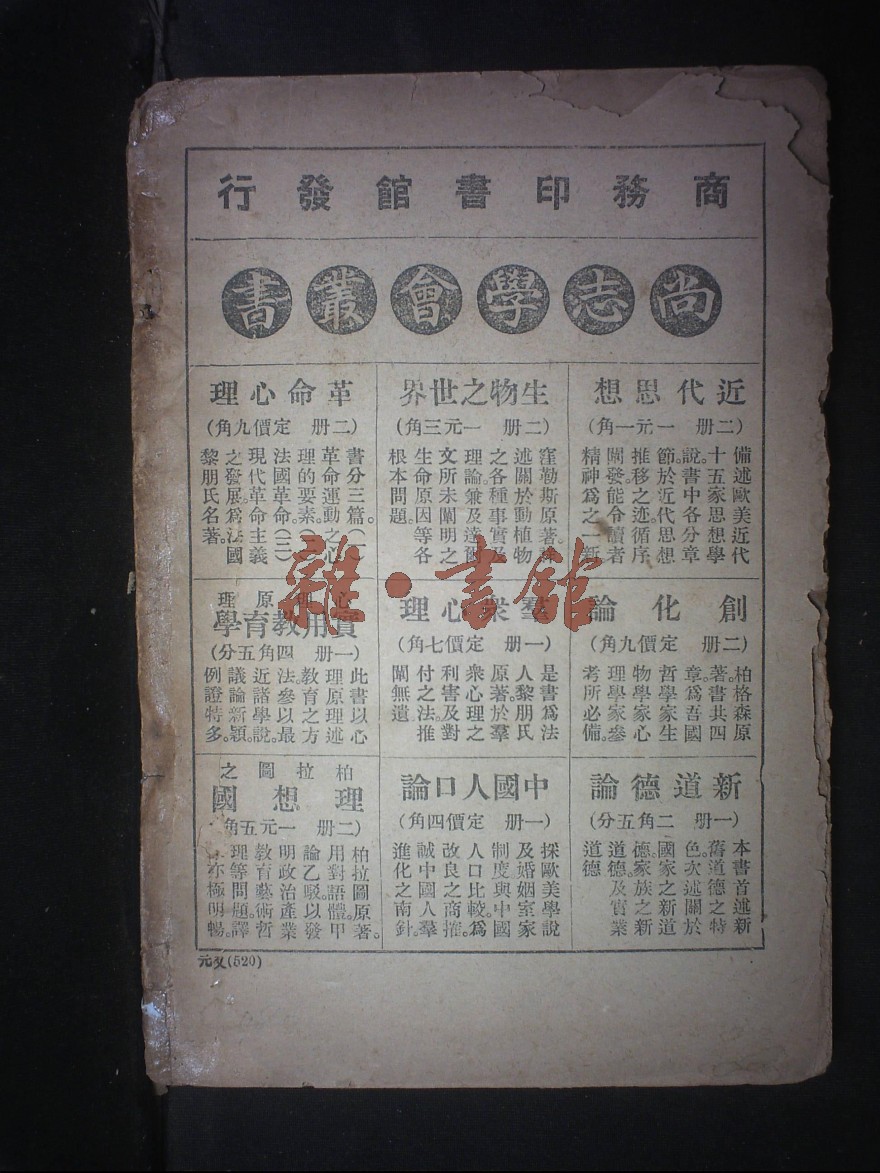 商務印書館發行
尚志學會叢書
近代思想
(二册 一元一角)
備述歐美近代
十五家思想學
說。書中各分章
節。於近代思想
推移之迹。循序
闡發。能令讀者
精神爲之一新
生物之世界
(二册 一元三角)
窪勒斯原著。
述關於動植物
之各種事實及
理論。兼及達爾
文所未闡明之
生命原因等各
根本問題。
革命心理
(二册 定價九角)
書分三篇。(一)
革命運動之心
理的要素。(二)
法國革命。(三)
現代革命主義
之發展。爲法國
黎朋氏名著。
創化論
(二册 定價九角)
柏格森原
著。書共四
章。爲吾國
哲學家生
物學家心
理學家參
考所必備。
羣衆心理
(一册 定價七角)
是書爲法
人黎朋氏
原著。於羣
衆心理之
利害及對
付之法。推
闡無遺
心理原理
實用教育學
(一册 四角五分)
此書以心
理原理述
教育之方
法。參以最
近諸學說。
議論新穎。
例證特多。
新道德論
(一册 二角五分)
本書首述新
舊道德之特
色。次述關於
國家之新道
德。家族之新
道德。及實業
道德
中國人口論
(一册 定價四角)
採歐美學說
及婚姻室家
制度與中國
人口比較。爲
改良之商搉。
誠中國人羣
進化之南針。
柏拉圖之
理想國
(二册 一元五角)
柏拉圖原著。
用對語體。甲
論乙駁。以發
明政治產業
教育藝術哲
理等問題。譯
亦極明暢。
元(520)
雜·書館